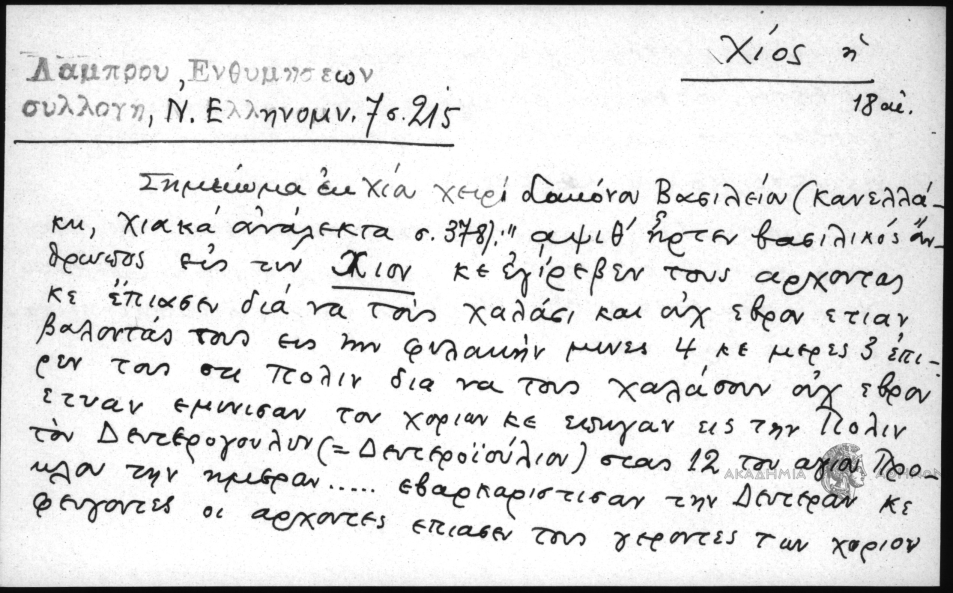 Χίος ἡ
18 αἰ.
Λάμπρου, Ενθυμησεων
συλλογη, Ν. Ελληνομν. 7 σ. 215
Σημείωμα ἐν Χίῳ χειρὶ διακόνου Βασιλείου (Κανελλά-
κη, Χιακά ἀνάλεκτα σ. 378). "αψιθ' ἦρτεν βασιλικός ἄν-
θρωπος εἰς τιν Χιον κε ἐγίρεβεν τους αρχοντας
κε ἔπιασεν διά να τούς χαλάσι και οὐχ εβρον ετιαν
βαλοντάς τους εις την φυλακήν μινες 4 κε μερες 3 ἐπι-
ρεν τους στι Πολιν δια να τους χαλάσουν οὐχ εβρον
ετυαν εμινισαν τον χοριων κε επιγαν εις την Πολιν
τὸν Δευτερογουλιν (= Δευτεροϊούλιον) στας 12 του αγιου Προ-
κλου την ημεραν..... εβαρκαριστισαν την Δευτεραν κε
φευγοντες οι αρχοντες επιασεν τους γεροντες των χοριον
ΑΚΑΔΗΜΙΑ ΑΘΗΝΩΝ